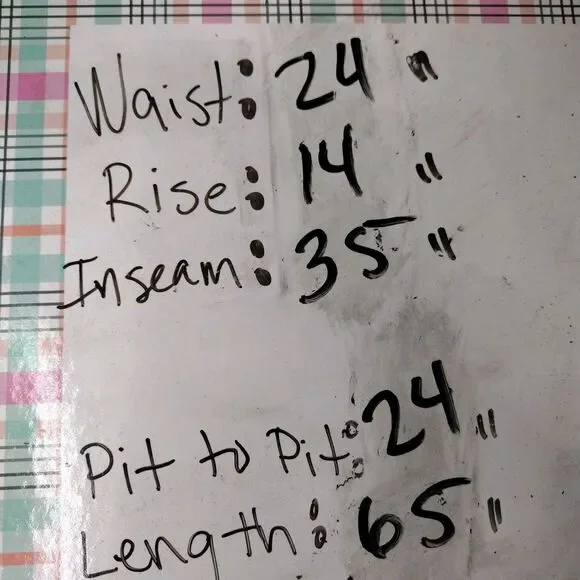 Waist: 24"
Rise: 14"
Inseam: 35"
Pit to Pit: 24"
Length: 65"